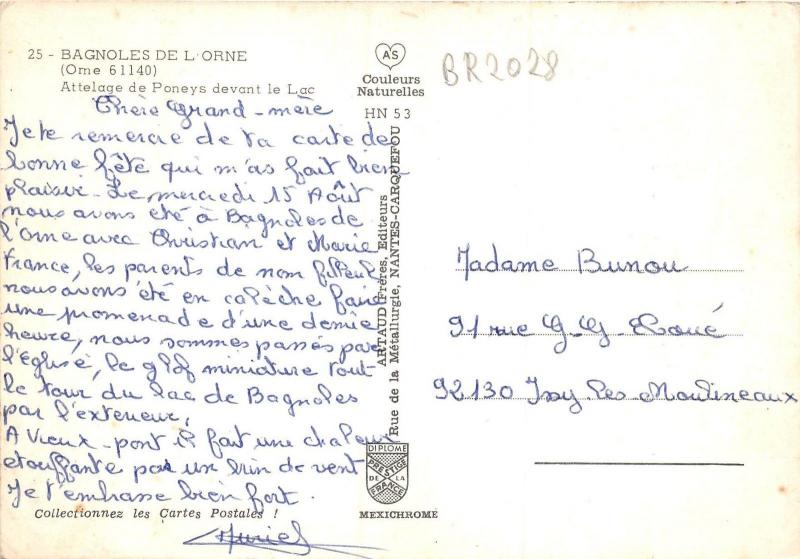 25 - BAGNOLES DE L'ORNE
(Orne 61140)
Attelage de Poneys devant le Lac
Chère Grand-mère
Je te remercie de ta carte de
bonne fête qui m'as fait bien
plaisir. Le mercredi 15 Août
nous avons été à Bagnoles de
l'orne avec Christian et Marie
France, les parents de mon filleul
nous avons été en calèche faire
une promenade d'une demie
heure, nous sommes passés par
l'église, le glof miniature tout
le tour du lac de Bagnoles
par l'exterieur,
A Vieux-pont il fait une chaleur
etouffante pas un brin de vent
Je t'embrasse bien fort.
Muriel
Collectionnez les Cartes Postales !
AS
Couleurs
Naturelles
HN 53
ARTAUD Frères, Editeurs
Rue de la Métallurgie, NANTES-CARQUEFOU
DIPLOME
PRESTIGE
DE LA
FRANCE
MEXICHROME
BR2028
Madame Bunou
91 rue G.G.
92130 Issy les Moulineaux